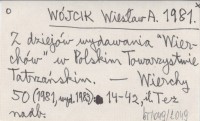 WÓJCIK Wiesław A. 1981.
Z dziejów wydawania "Wier-
chów" w Polskim Towarzystwie
Tatrzańskim. — Wierchy
50 (1981, wyd. 1983): 14-42, il. Też
nadb.